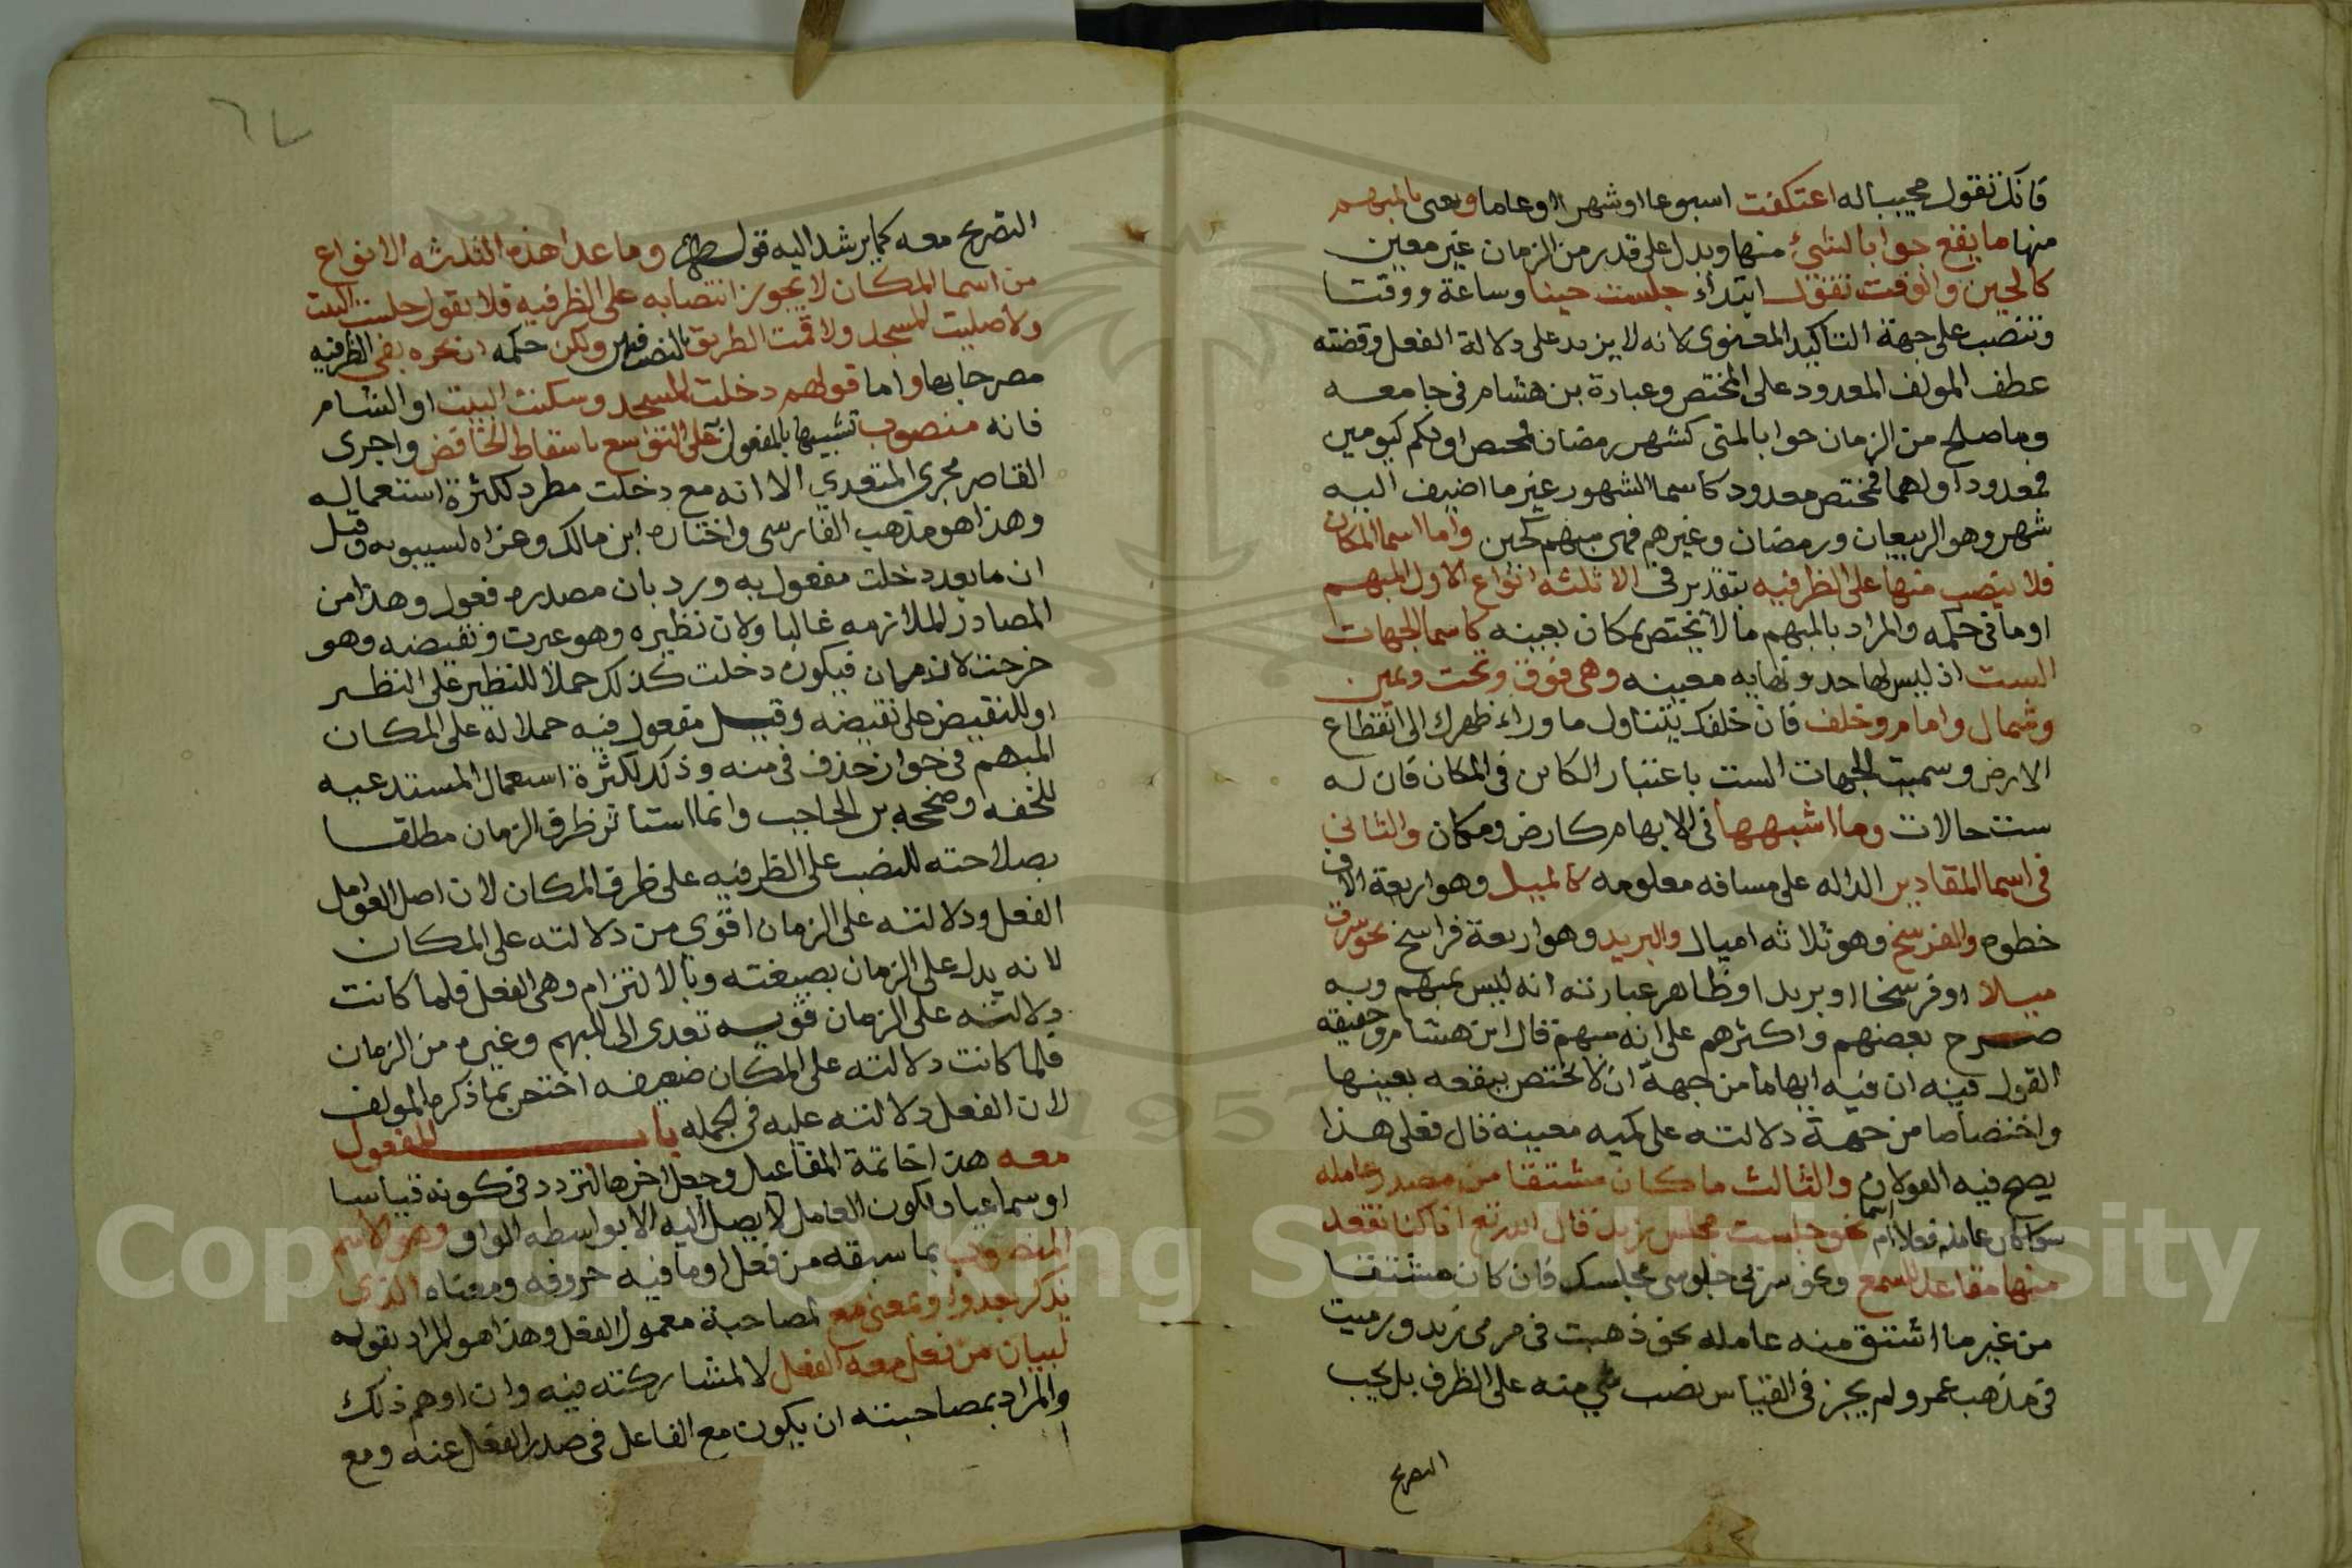 فانك تقول مجيبا له اعتكفت اسبوعا او شهرا او عاما ونعنى بالمبهم
منها ما يقع جوابا لشيء منها ويدل على قدر من الزمان غير معين
كالحين والوقت تقول ابتداء جلست حينا وساعة ووقتا
وتنصب على جهة التاكيد المعنوى لانه لا يزيد على دلالة الفعل وقضته
عطف المولف المعدود على المختص وعبارة بن هشام فى جامعه
وما صلح من الزمان جوابا لمتى كشهر رمضان فمختص او لكم كيومين
فمعدود او لهما فمختص معدود كاسما الشهور غير ما اضيف اليه
شهر وهو الربيعان ورمضان وغيرهم فمبهم كحين واما اسما المكان
فلا ينصب منها على الظرفيه بتقدير فى الا ثلثه انواع الاول المبهم
او ما فى حكمه والمراد بالمبهم ما لا يختص بمكان بعينه كاسما الجهات
الست اذ ليس لها حد ونهايه معينه وهى فوق وتحت ويمين
وشمال وامام وخلف فان خلفك يتناول ما وراء ظهرك الى انقطاع
الارض وسميت الجهات الست باعتبار الكاين فى المكان فان له
ست حالات وما اشبهها فى الابهام كارض ومكان والثانى
فى اسما المقادير الداله على مسافه معلومه كالميل وهو اربعة الاف
خطوه والفرسخ وهو ثلاثه اميال والبريد وهو اربعة فراسخ نحو سرت
ميلا او فرسخا او بريدا وظاهر عبارته انه ليس بمبهم وبه
صرح بعضهم واكثرهم على انه مبهم قال ابن هشام وحقيقة
القول فيه ان فيه ابهاما من جهة ان لا يختص ببقعه بعينها
واختصاصا من جهة دلالته على كميه معينة قال فعلى هذا
يصح فيه القولان والثالث ما كان مشتقا من مصدر عامله
سوا كان عامله فعلا ام اسما نحو جلست مجلس زيد قال الله تع انا كنا نقعد
منها مقاعد للسمع ونحو سرنى جلوسى مجلسك فان كان مشتقا
من غير ما اشتق منه عامله نحو ذهبت فى مرمى زيد ورميت
فى مذهب عمرو لم يجز فى القياس نصب شي منه على الظرف بل يجب
التصريح
التصريح معه كما يرشد اليه قول وما عدا هذه الثلثه الانواع
من اسما المكان لا يجوز انتصابه على الظرفيه فلا يقول جلست البيت
ولا صليت المسجد ولا قمت الطريق بالنصب ولكن حكمه ان نجره بفى الظرفيه
مصرحا بها واما قولهم دخلت المسجد وسكنت البيت او الشام
فانه منصوب تشبيها بالمفعول على التواسع باسقاط الخافض واجرى
القاصر مجرى المتعدي الا انه مع دخلت مطرد لكثرة استعماله
وهذا هو مذهب الفارسى واختاره ابن مالك وعزاه لسيبويه وقيل
ان ما بعد دخلت مفعول به ورد بان مصدره فعول وهذا من
المصادر الملازمه غالبا ولان نظيره وهو عبرت ونقيضه وهو
خرجت لازمان فيكون دخلت كذلك حملا للنظير على النظير
او للنقيض على نقيضه وقيل مفعول فيه حملا له على المكان
المبهم فى جواز حذف فى منه وذلك لكثرة استعمال المستدعيه
للخفه وصححه بن الحاجب وانما استاثر ظرف الزمان مطلقا
بصلاحته للنصب على الظرفيه على ظرف المكان لان اصل العوامل
الفعل ودلالته على الزمان اقوى من دلالته على المكان
لانه يدل على الزمان بصيغته وبالالتزام وهى الفعل فلما كانت
دلالته على الزمان قويه تعدى الى المبهم وغيره من الزمان
فلما كانت دلالته على المكان ضعيفه اختص بما ذكره المولف
لان الفعل دلالته عليه فى الجمله باب المفعول
معه هذا خاتمة المفاعيل وجعل اخرها لتردد فى كونه قياسا
او سماعيا ولكون العامل لا يصل اليه الا بواسطه الواو وهو الاسم
المنصوب بما سبقه من فعل او ما فيه حروفه ومعناه الذى
يذكر بعد واو بمعنى مع لمصاحبة معمول الفعل وهذا هو المراد بقوله
لبيان من فعل معه الفعل لا لمشاركته فيه وان اوهم ذلك
والمراد بمصاحبته ان يكون مع الفاعل فى صدر الفعل عنه ومع
Copyright © King Saud University
1957